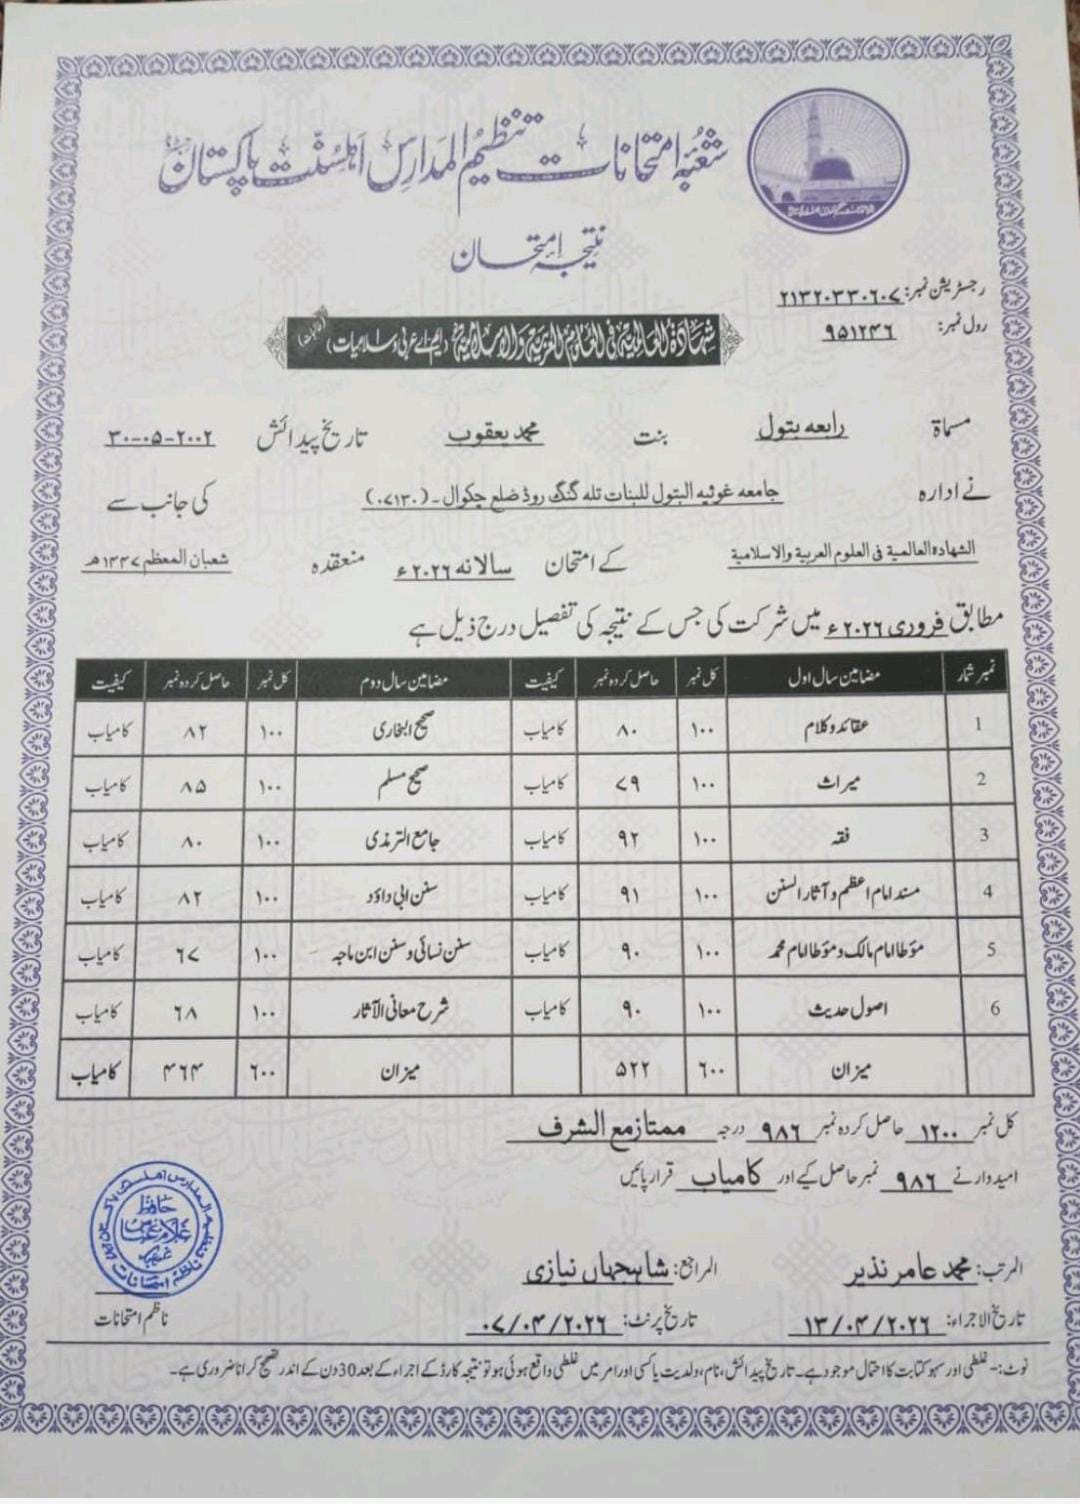 شعبۂ امتحانات تنظیم المدارس اہلسنّت پاکستان
نتیجہ امتحان
رجسٹریشن نمبر: ۲۱۳۲۰۳۳۰۶۰۷
رول نمبر: ۹۵۱۲۴۶
شہادۃ العالمیۃ فی العلوم العربیۃ والاسلامیۃ (ایم اے عربی و اسلامیات)
مسماۃ رابعہ بتول بنت محمد یعقوب تاریخ پیدائش ۳۰-۰۵-۲۰۰۲
نے ادارہ جامعہ غوثیہ البتول للبنات تلہ گنگ روڈ ضلع چکوال۔(۰۷۱۳۰) کی جانب سے
الشهادة العالمية فی العلوم العربية والاسلامية کے امتحان سالانہ ۲۰۲۶ء منعقدہ شعبان المعظم ۱۴۴۷ھ
مطابق فروری ۲۰۲۶ء میں شرکت کی جس کے نتیجہ کی تفصیل درج ذیل ہے
نمبر شمار مضامین سال اول کل نمبر حاصل کردہ نمبر کیفیت مضامین سال دوم کل نمبر حاصل کردہ نمبر کیفیت
1 عقائد و کلام ۱۰۰ ۸۰ کامیاب صحیح البخاری ۱۰۰ ۸۲ کامیاب
2 میراث ۱۰۰ ۷۹ کامیاب صحیح مسلم ۱۰۰ ۸۵ کامیاب
3 فقہ ۱۰۰ ۹۲ کامیاب جامع الترمذی ۱۰۰ ۸۰ کامیاب
4 مسند امام اعظم و آثار السنن ۱۰۰ ۹۱ کامیاب سنن ابی داؤد ۱۰۰ ۸۲ کامیاب
5 مؤطا امام مالک و مؤطا امام محمد ۱۰۰ ۹۰ کامیاب سنن نسائی و سنن ابن ماجہ ۱۰۰ ۶۷ کامیاب
6 اصول حدیث ۱۰۰ ۹۰ کامیاب شرح معانی الآثار ۱۰۰ ۶۸ کامیاب
میزان ۶۰۰ ۵۲۲ میزان ۶۰۰ ۴۶۴ کامیاب
کل نمبر ۱۲۰۰ حاصل کردہ نمبر ۹۸۶ درجہ ممتاز مع الشرف
امیدوار نے ۹۸۶ نمبر حاصل کیے اور کامیاب قرار پائیں
المرتب: محمد عامر نذیر المراجع: شاہجہاں نیازی
تاریخ الاجراء: ۱۳/۰۴/۲۰۲۶ تاریخ پرنٹ: ۰۷/۰۴/۲۰۲۶ ناظم امتحانات
نوٹ:- غلطی اور سہو کتابت کا احتمال موجود ہے۔ تاریخ پیدائش، نام، ولدیت یا کسی اور امر میں غلطی واقع ہوئی ہو تو نتیجہ کارڈ کے اجراء کے بعد 30 دن کے اندر تصحیح کرانا ضروری ہے۔